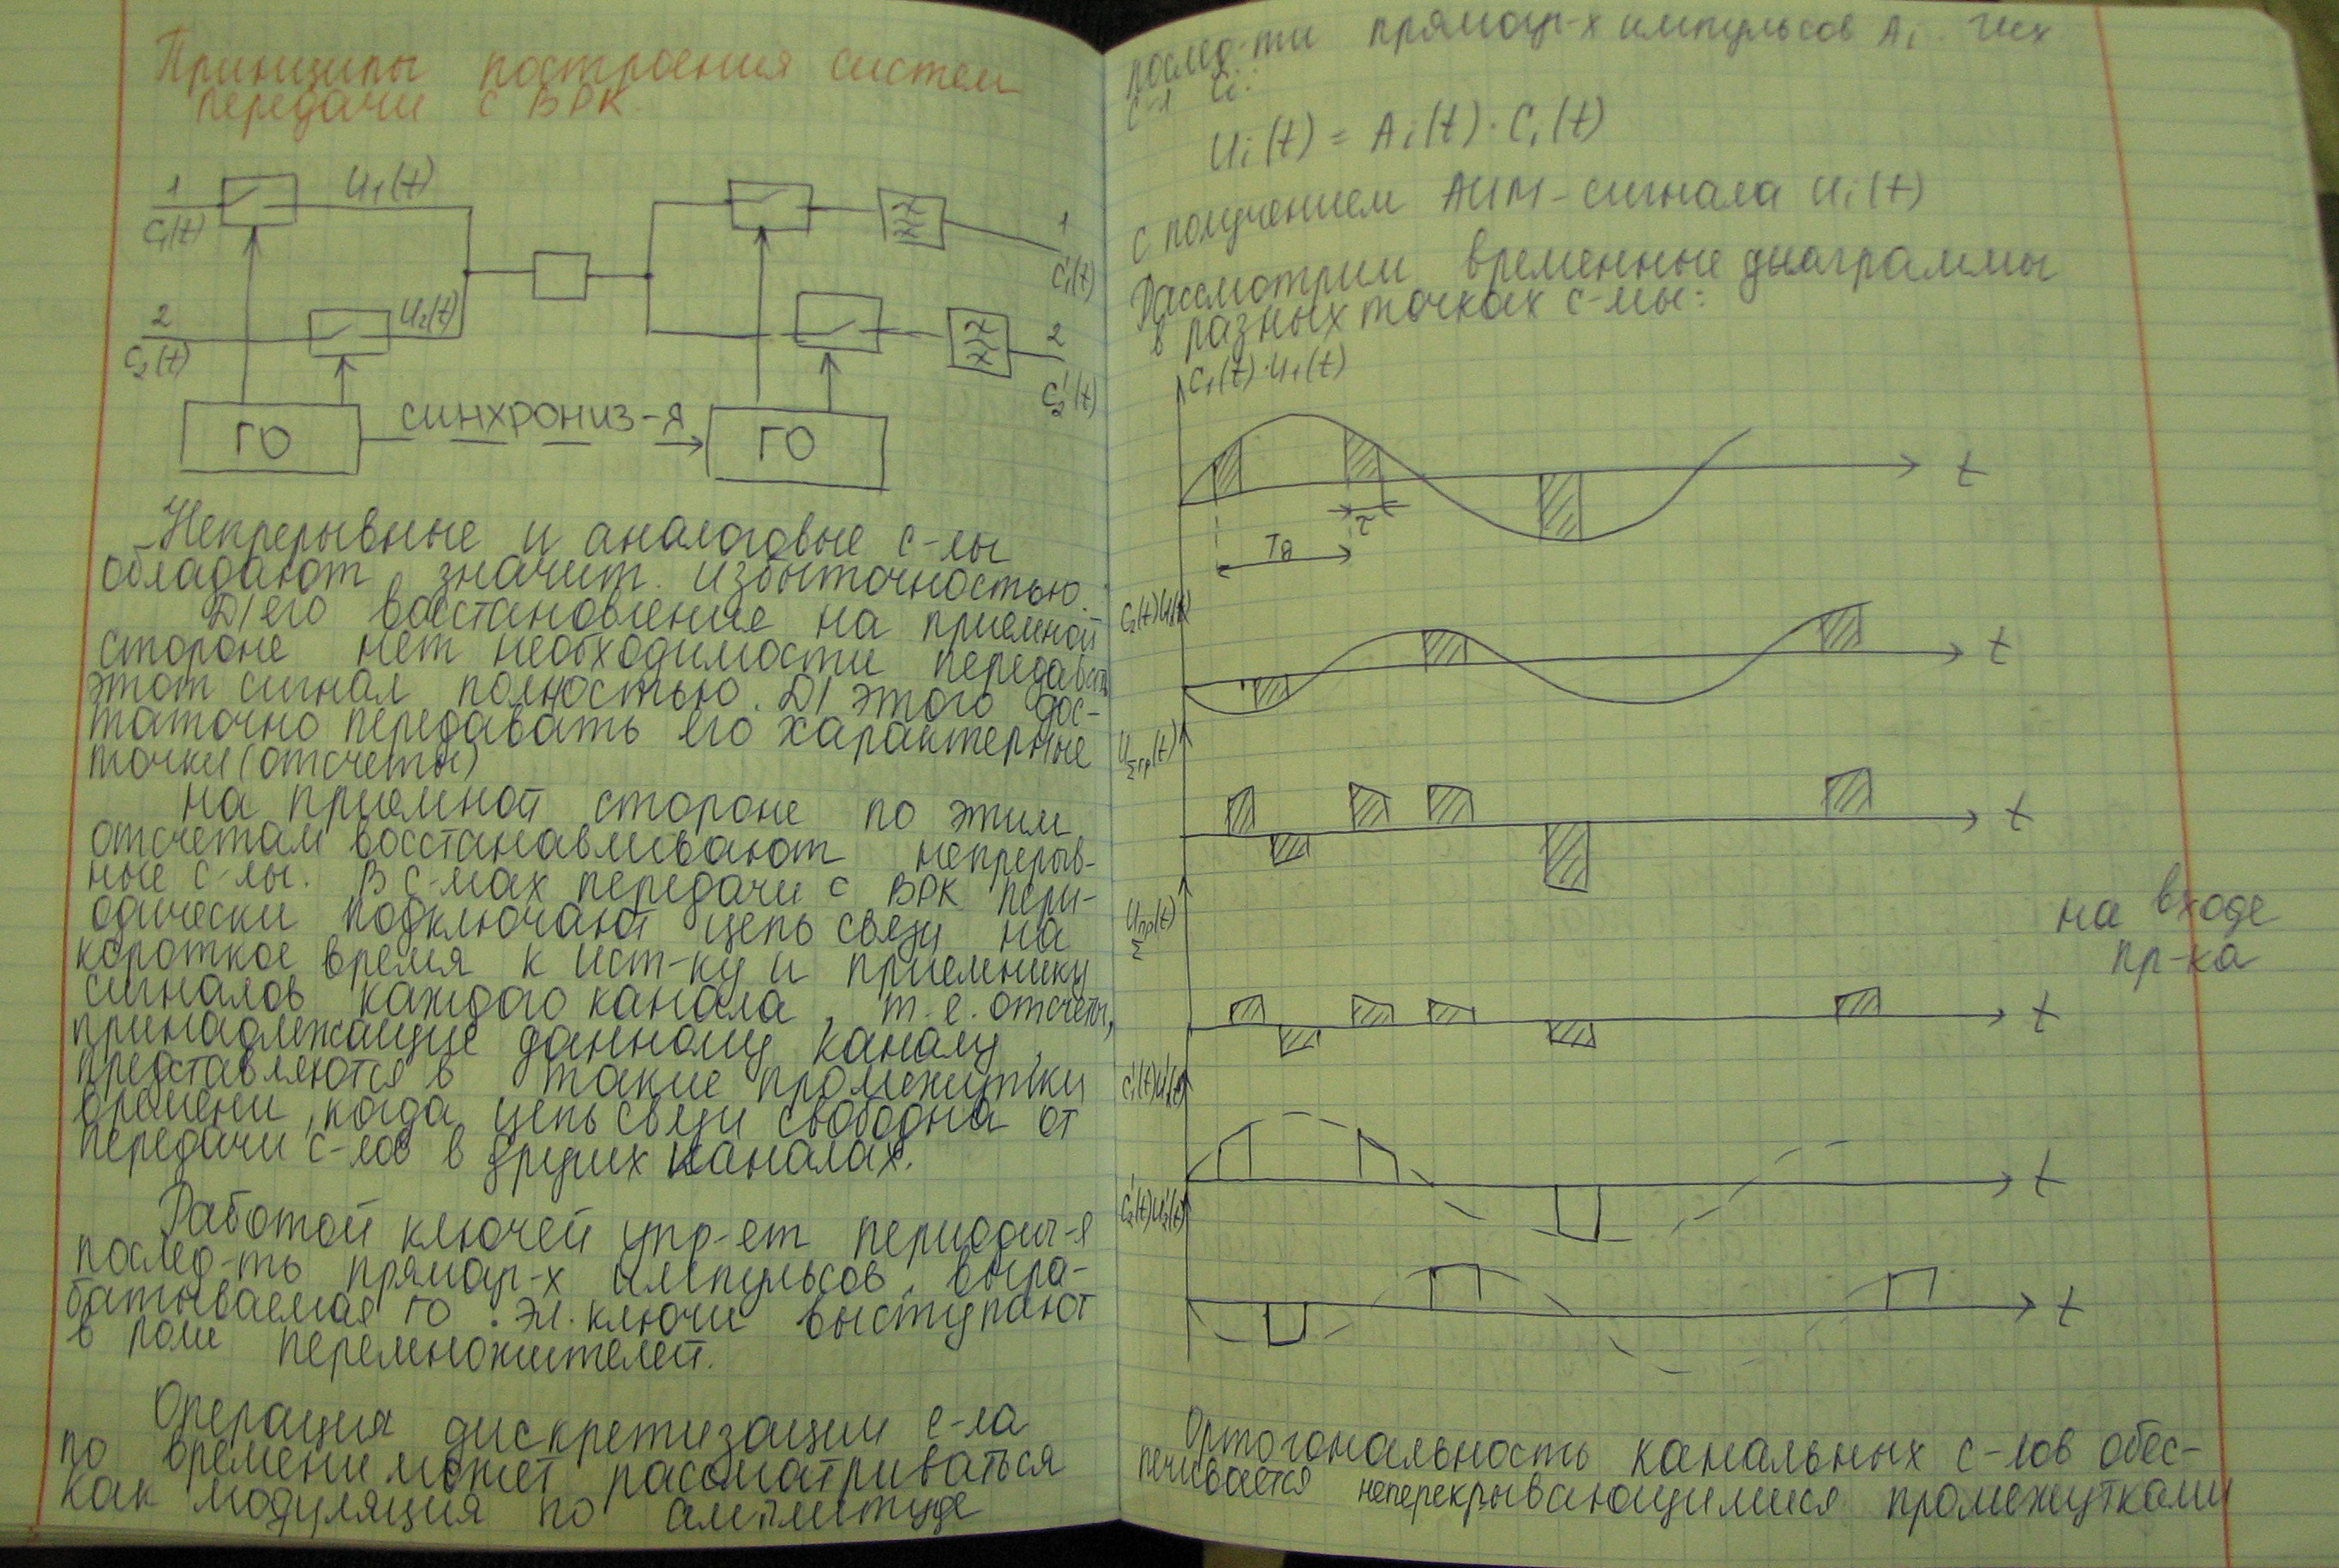 Принципы построения систем
передачи с ВРК.
1
C₁(t)
U₁(t)
1
C₁'(t)
2
C₂(t)
U₂(t)
2
C₂'(t)
ГО
синхрониз-я
ГО
Непрерывные и аналоговые с-лы
обладают значит. избыточностью.
Д/его восстановления на приемной
стороне нет необходимости передавать
этот сигнал полностью. Д/ этого дос-
таточно передавать его характерные
точки (отсчеты)
На приемной стороне по этим
отсчетам восстанавливают непрерыв-
ные с-лы. В с-мах передачи с ВРК пери-
одически подключают цепь связи на
короткое время к ист-ку и приемнику
сигналов каждого канала, т.е. отсчеты,
принадлежащие данному каналу,
представляются в такие промежутки
времени, когда цепь связи свободна от
передачи с-лов в других каналах.
Работой ключей упр-ет периодич-я
послед-ть прямоуг-х импульсов, выра-
батываемая ГО. Эл. ключи выступают
в роли перемножителей.
Операция дискретизации с-ла
по времени может рассматриваться
как модуляция по амплитуде
послед-ти прямоуг-х импульсов Ai
с-л Ci:
Ui(t) = Ai(t)·Ci(t)
с получением АИМ-сигнала Ui(t)
Рассмотрим временные диаграммы
в разных точках с-мы:
C₁(t)·U₁(t)
t
τ
Tд
C₂(t)U₂(t)
t
U
(t)
t
на входе
Uпр(t)
Σ
пр-ка
t
C₁'(t)U₁'(t)
t
C₂'(t)U₂'(t)
t
Ортогональность канальных с-лов обес-
печивается неперекрывающимися промежутками